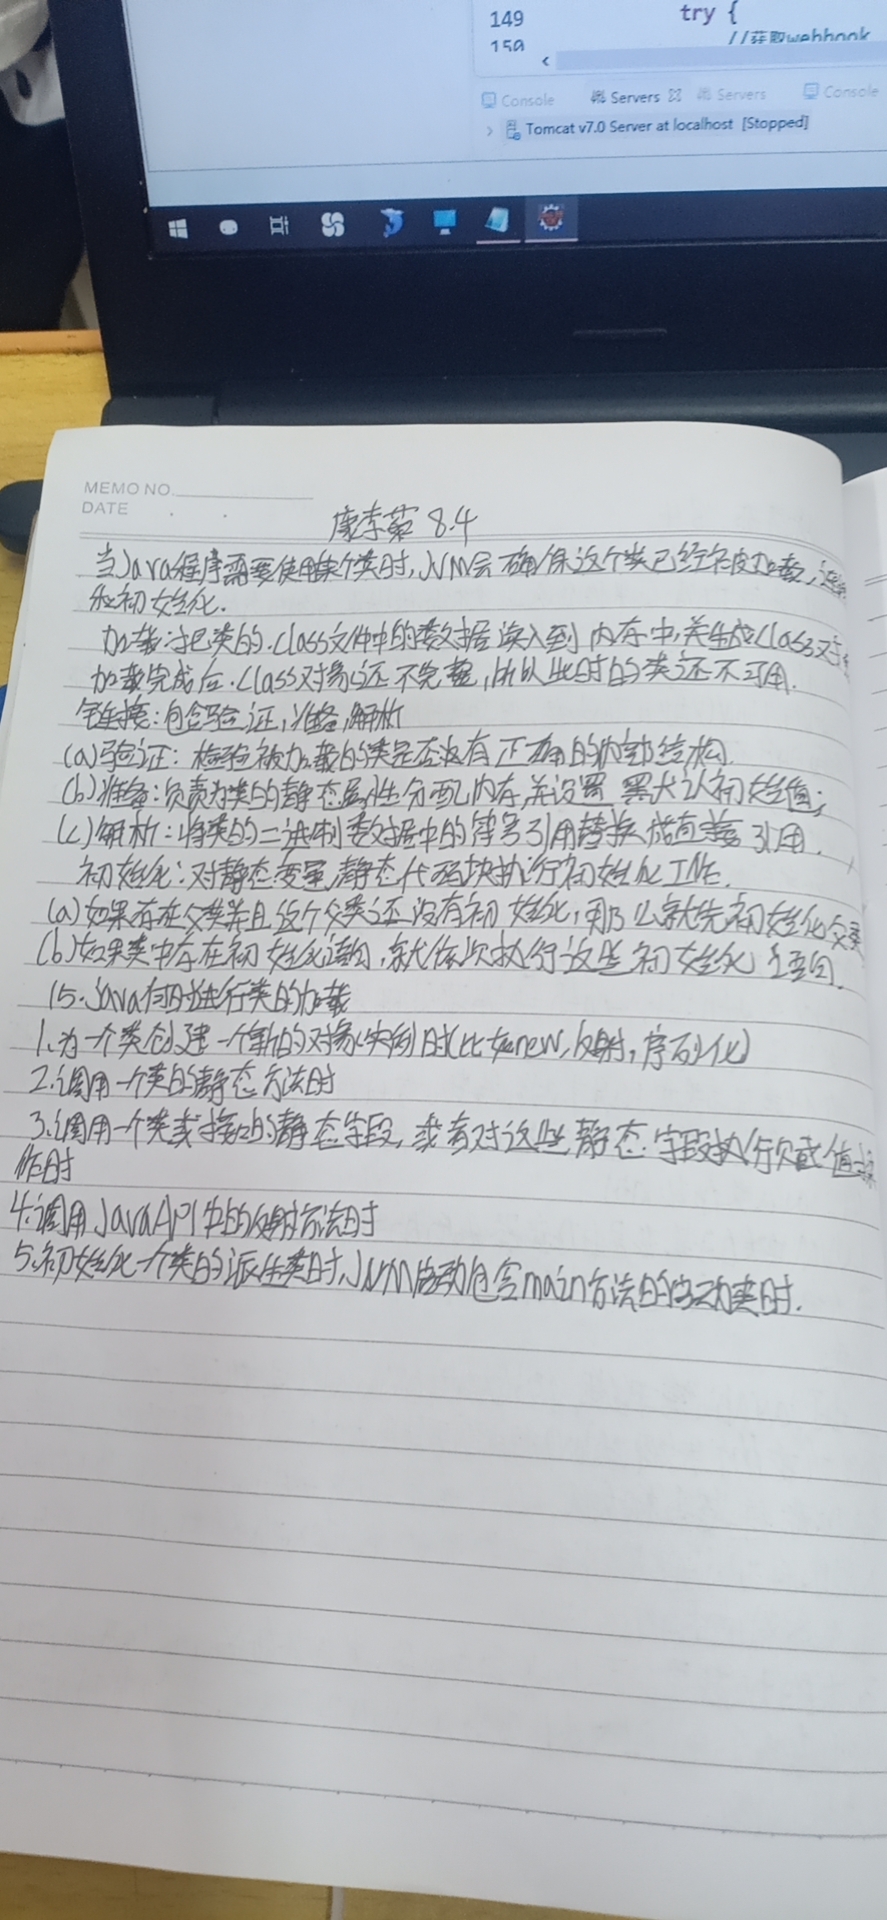 149
try {
150
//获取webhook
Console
Servers
Servers
Console
Tomcat v7.0 Server at localhost [Stopped]
MEMO NO.
DATE
8.4
当Java程序需要使用某个类时,JVM会确保这个类已经被加载,连接
和初始化.
加载:把类的.class文件中的数据读入到内存中,并生成Class对象
加载完成后.Class对象还不完整,所以此时的类还不可用.
链接:包含验证,准备,解析
(a)验证:检验被加载的类是否有正确的内部结构.
(b)准备:负责为类的静态属性分配内存,并设置默认初始值;
(c)解析:将类的二进制数据中的符号引用替换成直接引用.
初始化:对静态变量,静态代码块执行初始化工作.
(a)如果存在父类并且这个父类还没有初始化,那么就先初始化父类
(b)如果类中存在初始化语句,就依次执行这些初始化语句.
15.Java何时进行类的加载
1.为一个类创建一个新的对象实例时(比如new,反射,序列化)
2.调用一个类的静态方法时
3.调用一个类或接口的静态字段,或者对这些静态字段执行赋值操
作时
4.调用JavaAPI中的反射方法时
5.初始化一个类的派生类时,JVM启动包含main方法的启动类时.